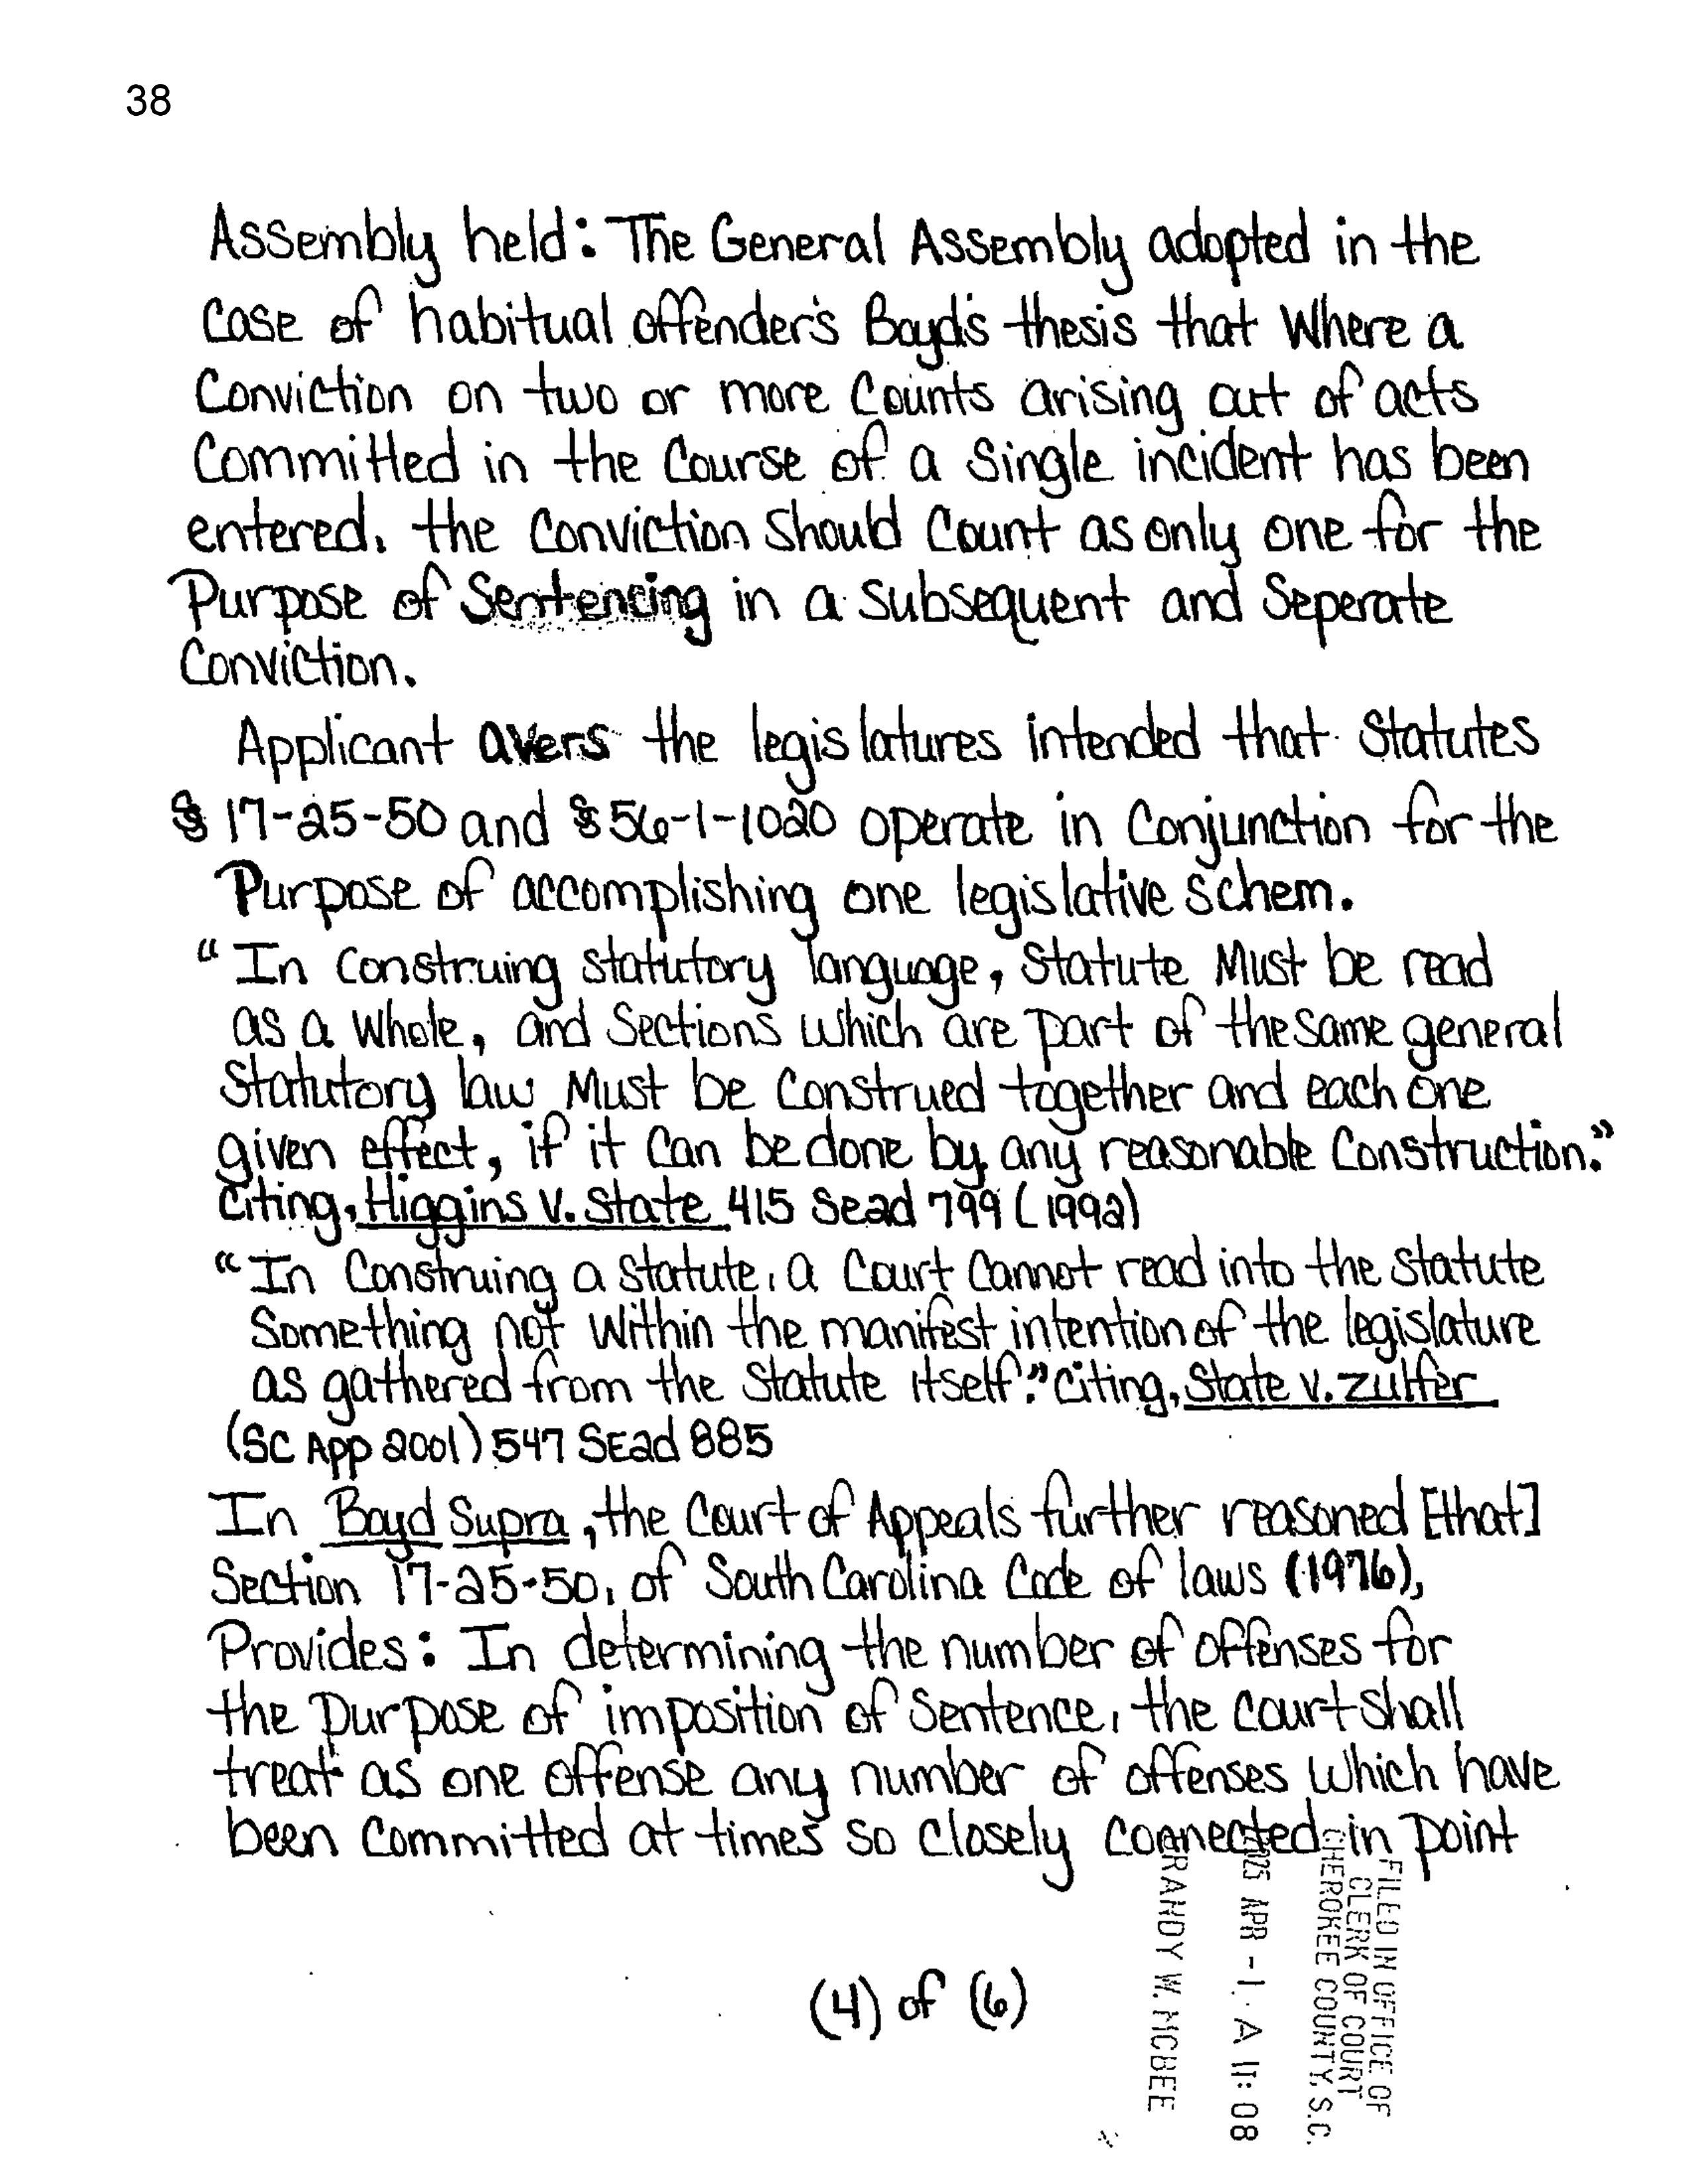 38
Assembly held: The General Assembly adopted in the
Case of habitual offender's Boyd's thesis that Where a
Conviction on two or more Counts arising out of acts
Committed in the Course of a Single incident has been
entered, the Conviction Should Count as only one for the
Purpose of Sentencing in a Subsequent and Seperate
Conviction.
Applicant avers the legislatures intended that Statutes
§ 17-25-50 and § 56-1-1020 operate in Conjunction for the
Purpose of accomplishing one legislative Schem.
"In Construing Statutory language, Statute Must be read
as a Whole, and Sections which are part of the same general
Statutory law Must be Construed together and each one
given effect, if it Can be done by any reasonable Construction."
Citing, Higgins v. State 415 Se2d 799 (1992)
"In Construing a Statute, a Court Cannot read into the Statute
Something not Within the manifest intention of the legislature
as gathered from the Statute itself." Citing, State v. Zulfer
(SC App 2001) 547 SE2d 885
In Boyd Supra, the Court of Appeals further reasoned [that]
Section 17-25-50, of South Carolina Code of laws (1976),
Provides: In determining the number of offenses for
the Purpose of imposition of Sentence, the Court Shall
treat as one offense any number of offenses Which have
been Committed at times so Closely Connected in Point
(4) of (6)
FILED IN OFFICE OF
CLERK OF COURT
CHEROKEE COUNTY, S.C.
2025 APR -1. A 11: 08
BRANDY W. MCBEE